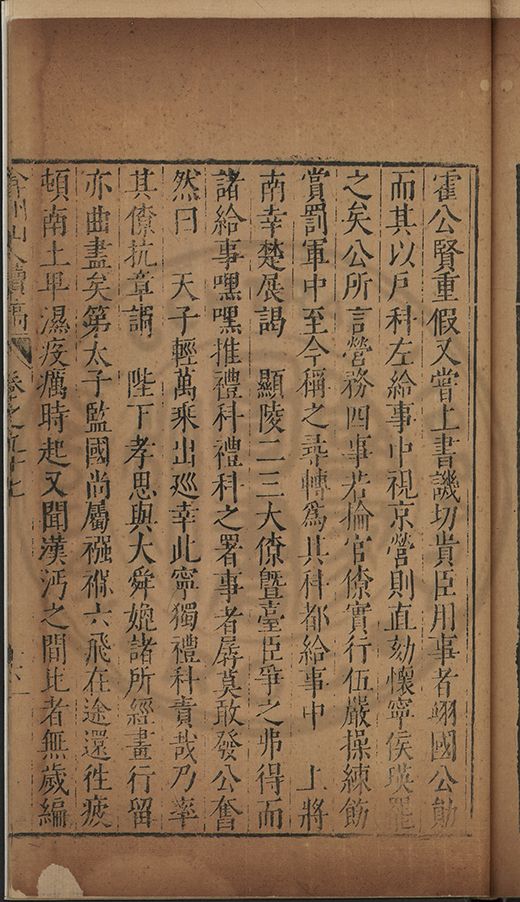 霍公賢重假又嘗上書譏切貴臣用事者翊國公勛
而其以戶科左給事中視京營則直劾懷寧侯瑛罷
之矣公所言營務四事若掄官僚實行伍嚴操練飭
賞罰軍中至今稱之尋轉爲其科都給事中　上將
南幸楚展謁　顯陵二三大僚曁臺臣爭之弗得而
諸給事嘿嘿推禮科禮科之署事者孱莫敢發公奮
然曰　天子輕萬乘出廵幸此寧獨禮科責哉乃率
其僚抗章謂　陛下孝思與大舜媲諸所經畫行留
亦曲盡矣第太子監國尚屬襁褓六飛在途還徃疲
頓南土卑濕疫癘時起又聞漢沔之間比者無歲編
弇州山人續稿　卷之